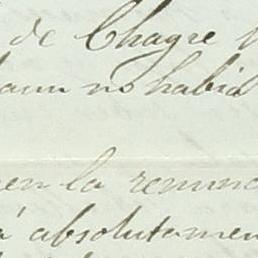 de Chagre
aun no habia
en la renunc
á absolutamen